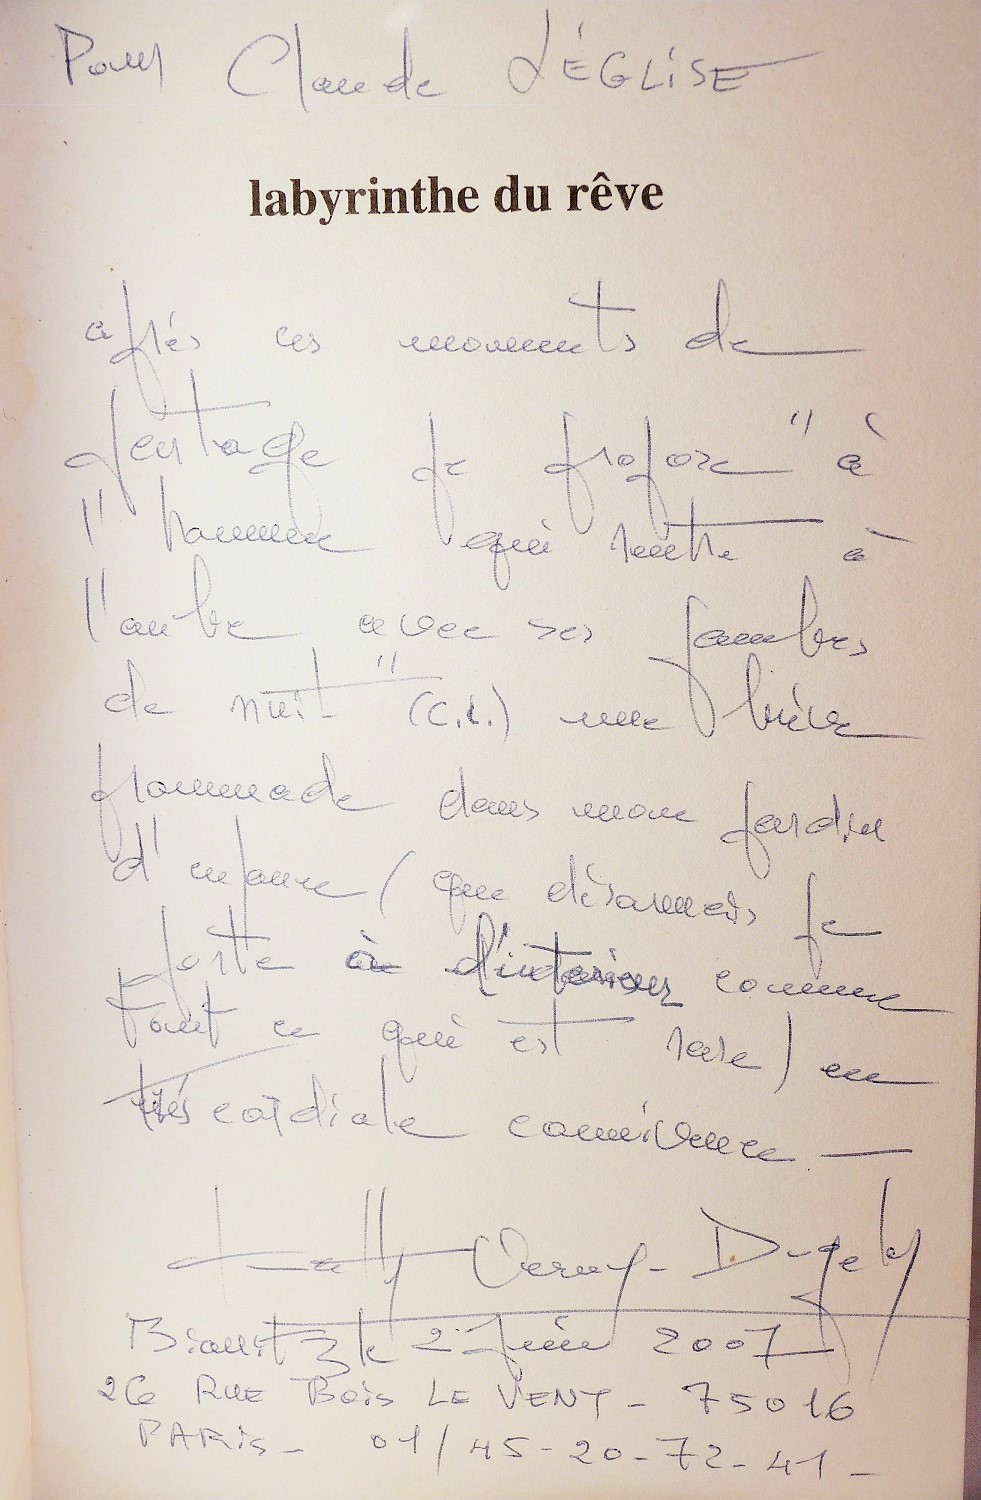 Pour Claude LÉGLISE
labyrinthe du rêve
après ces moments de
partage je propose " à
l'homme qui rentre à
l'aube avec ses jambes
de nuit " (C.L.) une brève
promenade dans mon jardin
d'enfance (que désormais je
porte à l'intérieur comme
tout ce qui est rare) en
très cordiale connivence —
Verny-Dugelay
Biarritz le 2 Juin 2007
26 RUE BOIS LE VENT - 75016
PARIS - 01/45-20-72-41-